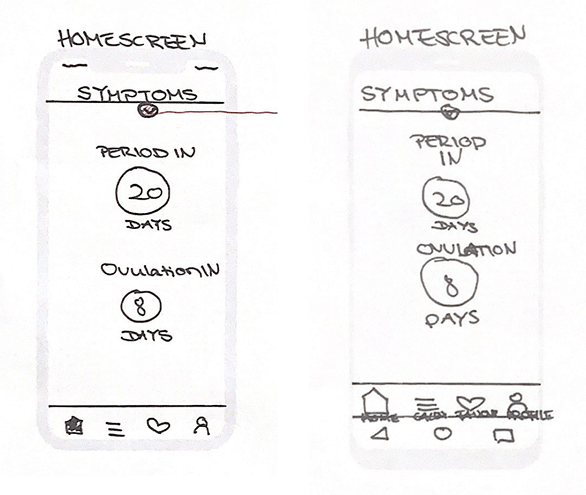 HOMESCREEN
SYMPTOMS
PERIOD IN
20
DAYS
Ovulation IN
8
DAYS
HOMESCREEN
SYMPTOMS
PERIOD
IN
20
DAYS
OVULATION
8
DAYS
HOME PROFILE